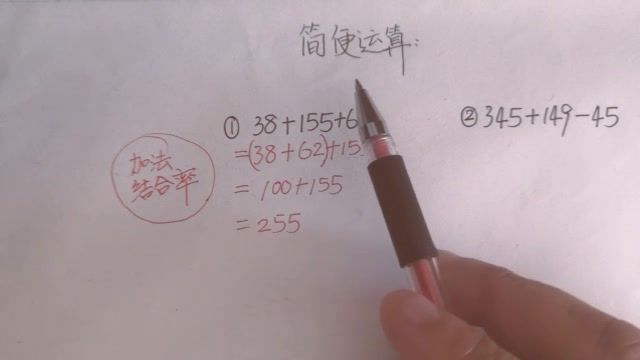 简便运算:
① 38+155+6
=(38+62)+15
= 100+155
= 255
加法
结合率
② 345+149-45